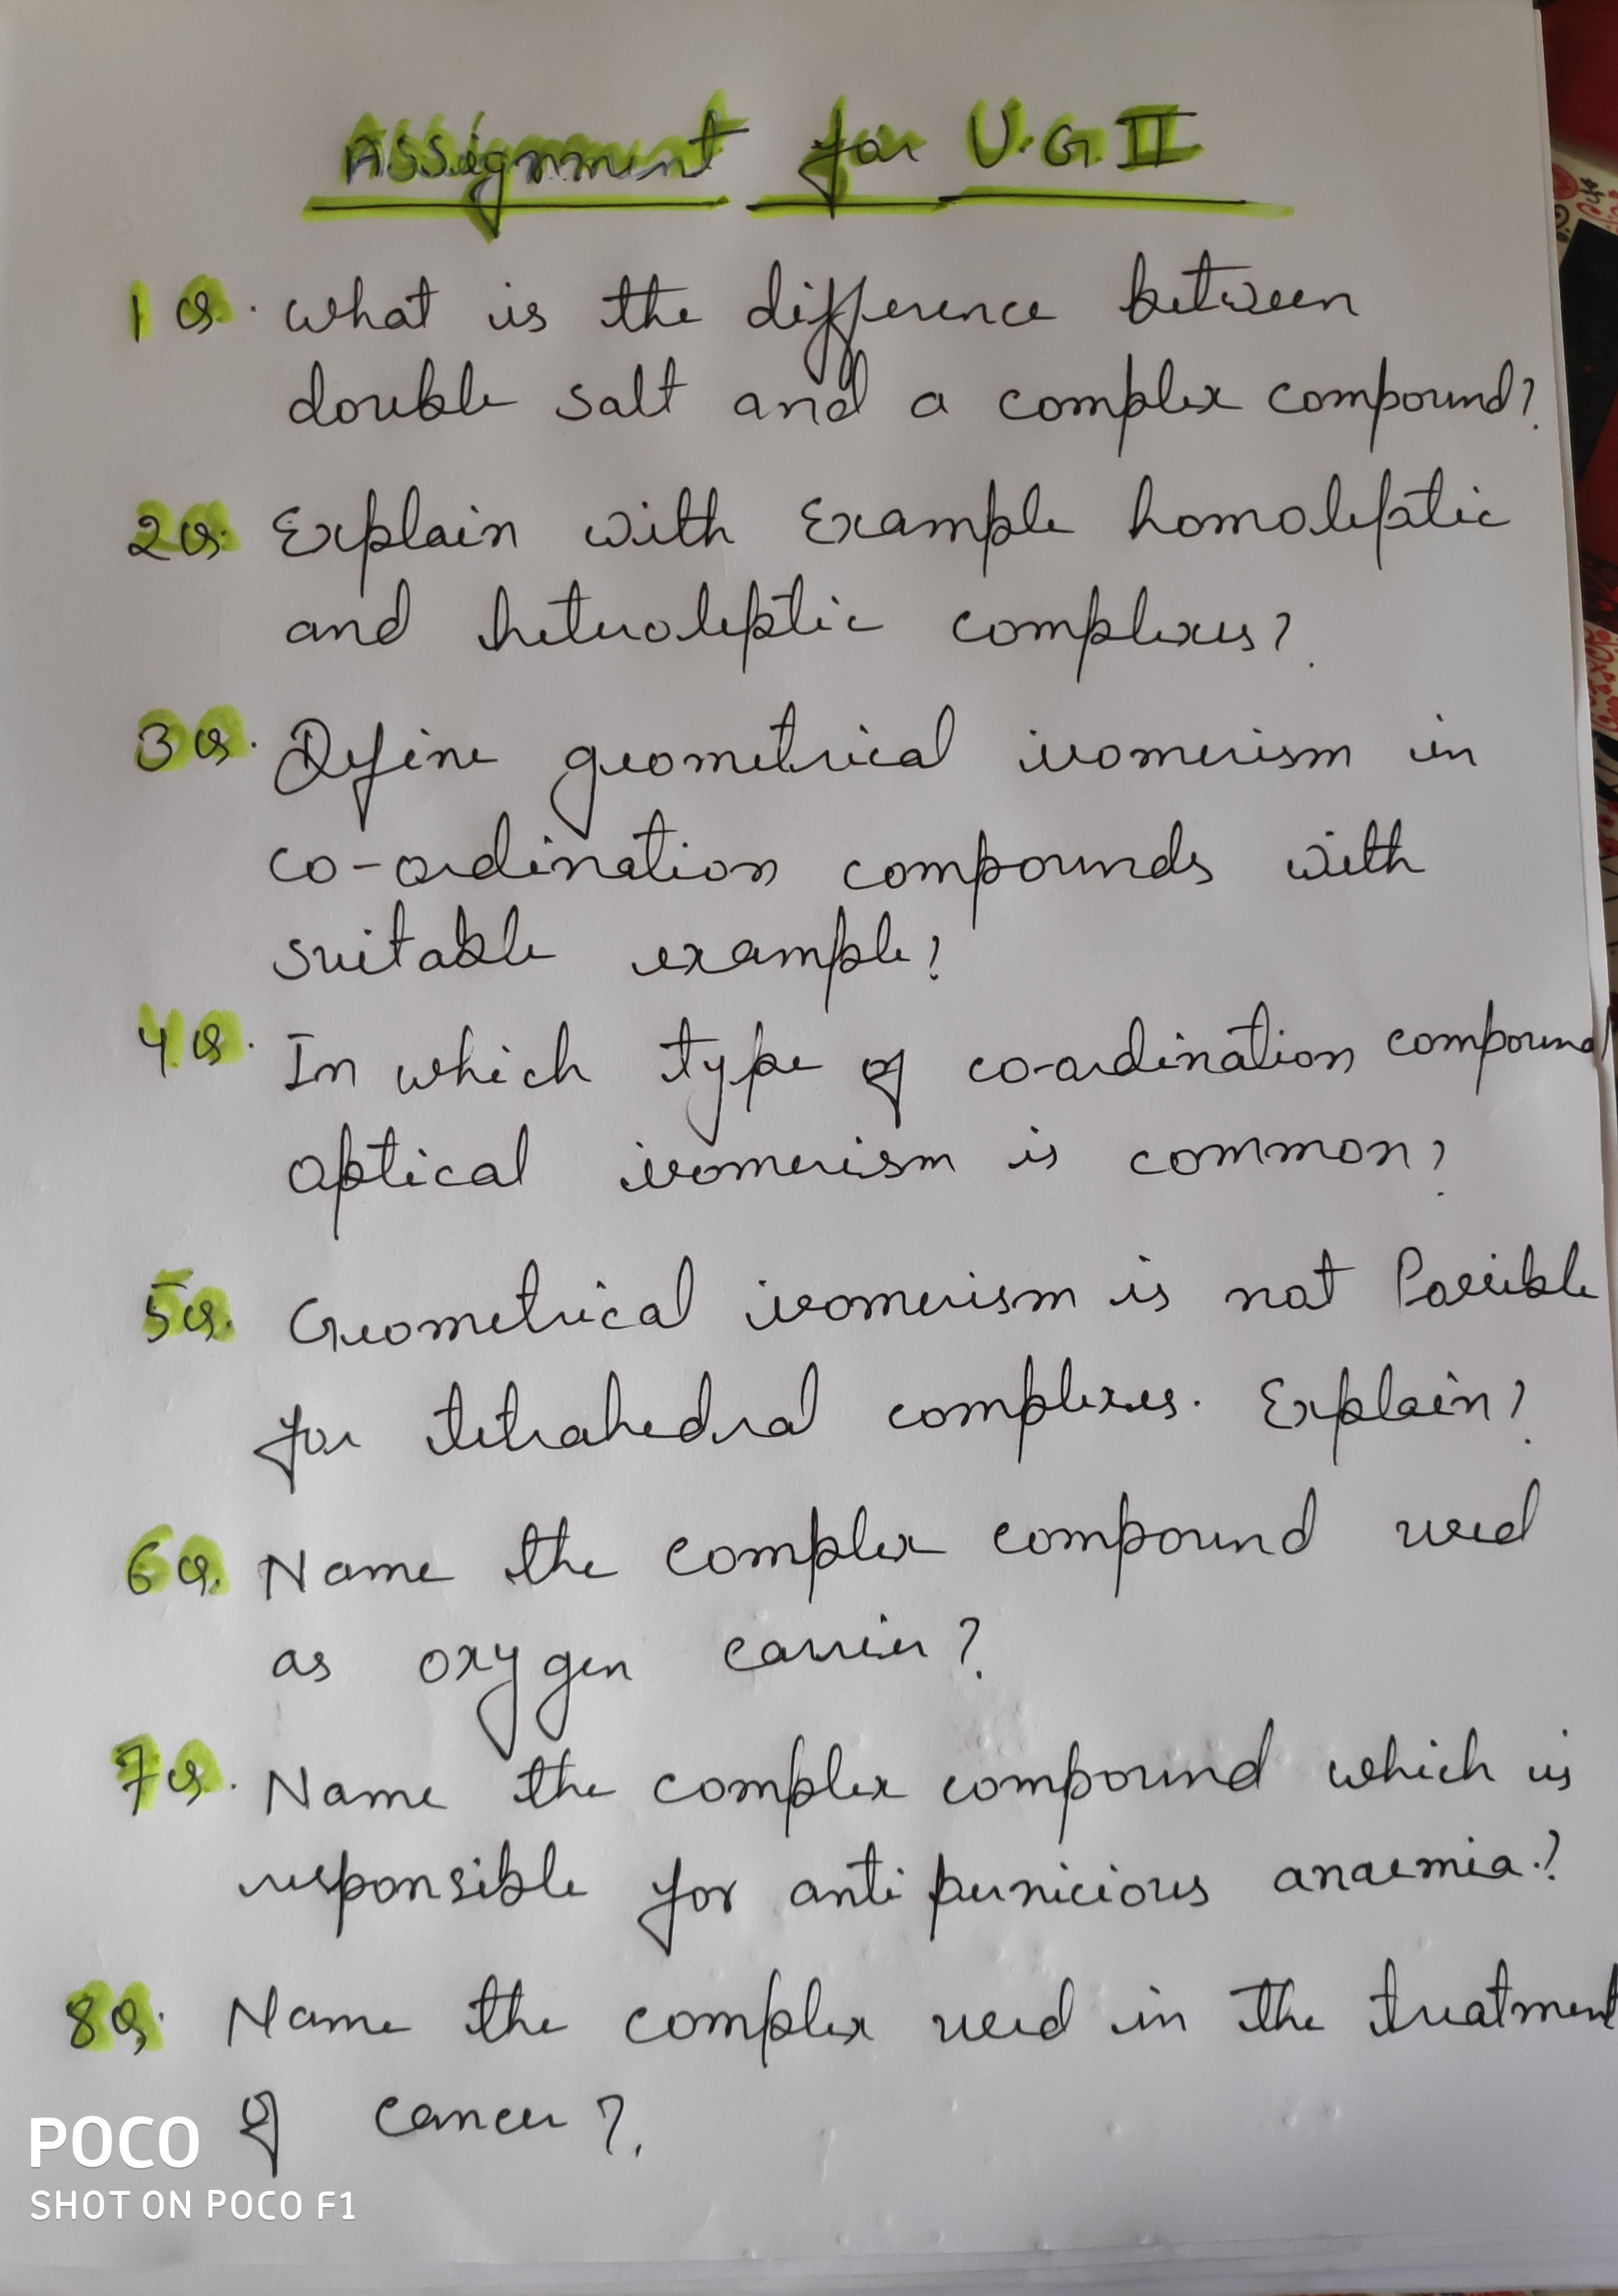 Assignment for U.G.II
1Q. What is the difference between
double salt and a complex compound?
2Q. Explain with Example homoleptic
and heteroleptic complexes?
3Q. Define geometrical isomerism in
co-ordination compounds with
suitable example?
4Q. In which type of co-ordination compound
optical isomerism is common?
5Q. Geometrical isomerism is not Possible
for tetrahedral complexes. Explain?
6Q. Name the complex compound used
as oxygen carrier?
7Q. Name the complex compound which is
responsible for anti pernicious anaemia?
8Q. Name the complex used in the treatment
of cancer?
POCO
SHOT ON POCO F1